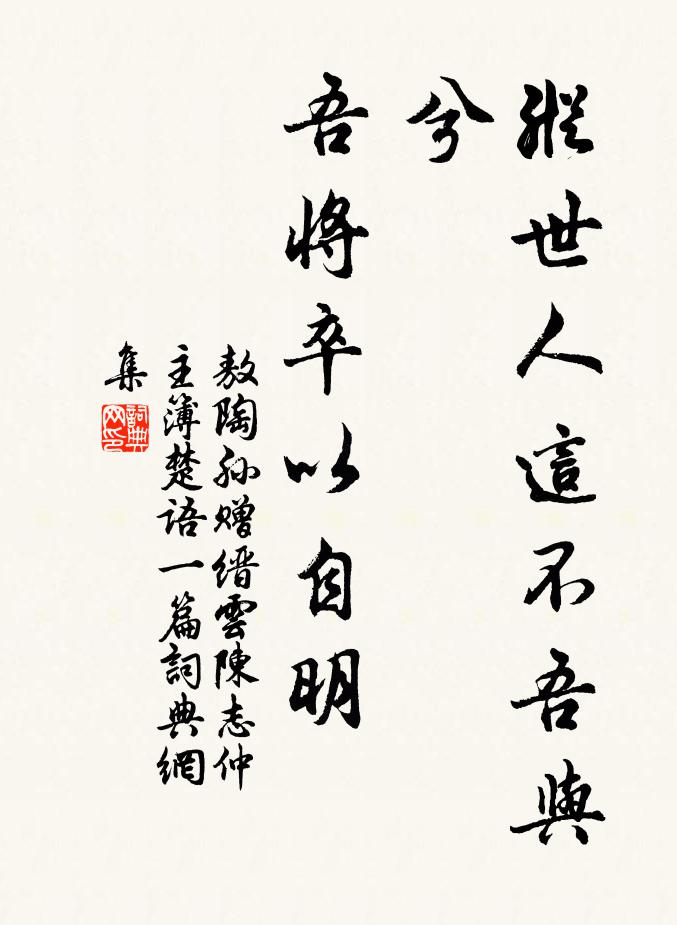 縱世人這不吾與
兮
吾將卒以自明
敖陶孫贈縉雲陳志仲
主簿楚語一篇詞典網
集
詞典网印